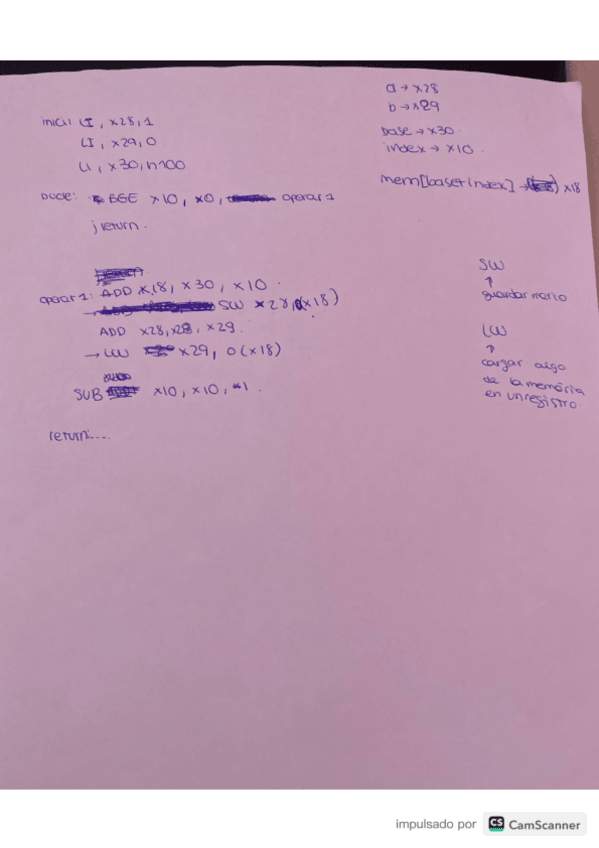 a → x28
b → x29
base → x30
index → x10
mem[base+index] → x18
inici: LI, x28, 1
LI, x29, 0
LI, x30, h100
bucle: BGE x10, x0, operar 1
j return.
operar 1: ADD x18, x30, x10.
SW x28, 0(x18)
ADD x28, x28, x29.
→ LW x29, 0(x18)
SUB x10, x10, 1.
return:....
SW
↑
guardar
LW
↑
cargar algo
de la memória
en un registro.
impulsado por CS CamScanner